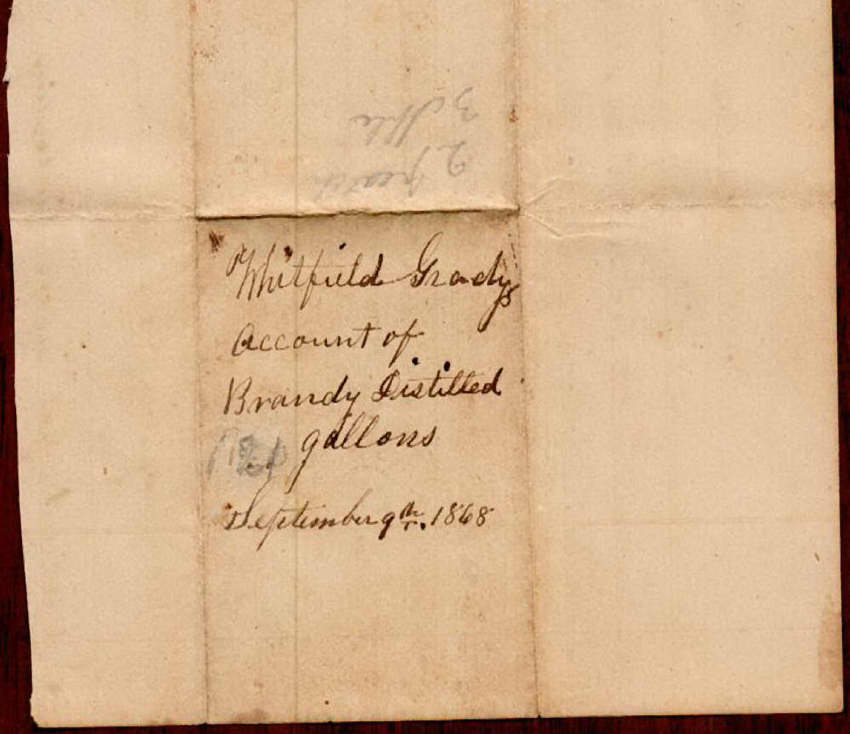 Whitfield Gradys
Account of
Brandy Distilled
gallons
September 9th. 1868